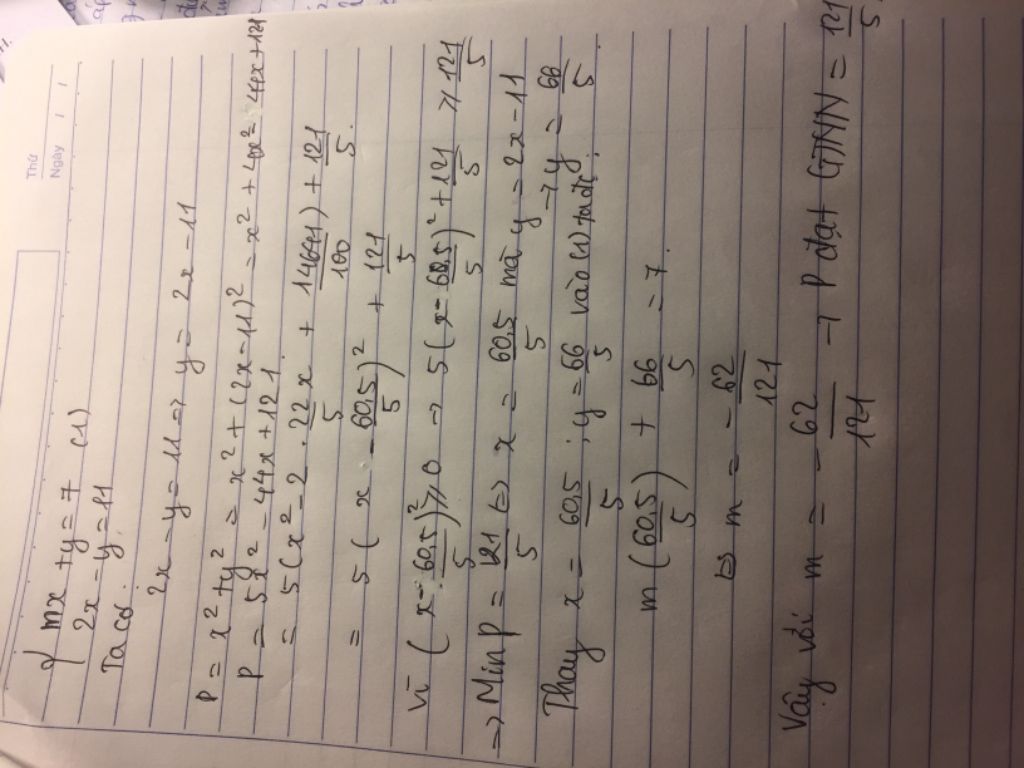 Thứ
Ngày
{ mx + y = 7 (1)
2x - y = 11
Ta có:
2x - y = 11 => y = 2x - 11
P = x² + y² = x² + (2x - 11)² = x² + 4x² - 44x + 121
P = 5x² - 44x + 121
= 5(x² - 2 . 22/5 x + 14641/100) + 121/5.
= 5(x - 60,5/5)² + 121/5
Vì (x - 60,5/5)² ≥ 0 → 5(x - 60,5/5)² + 121/5 ≥ 121/5
=> Min P = 121/5 <=> x = 60,5/5 mà y = 2x - 11
→ y = 66/5
Thay x = 60,5/5 ; y = 66/5 vào (1) ta đc:
m(60,5/5) + 66/5 = 7.
<=> m = -62/121
Vậy với m = -62/121 → P đạt GTNN = 121/5